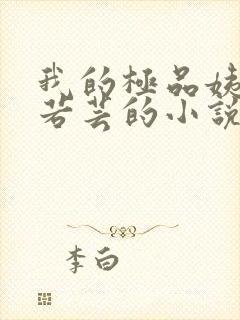 我的極品姨
若芸的小說
李白